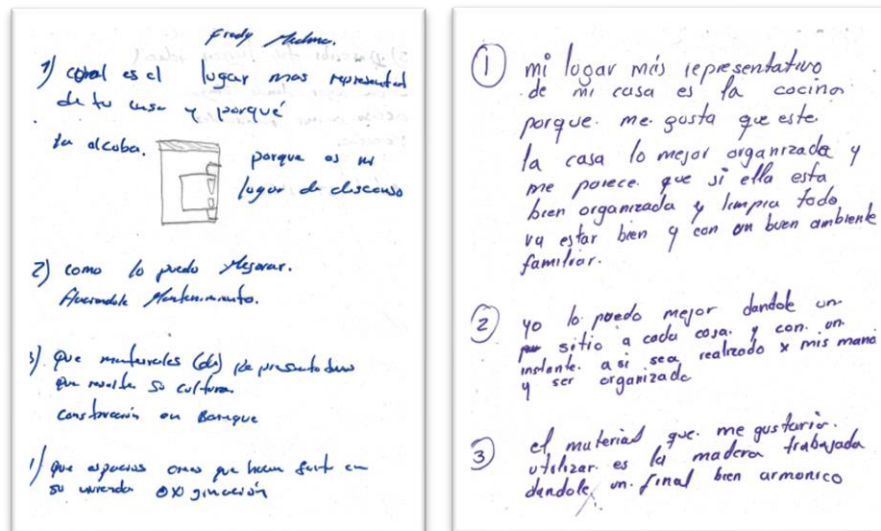 Fredy Medina.
1) cual es el lugar mas representa
de tu casa y porqué
la alcoba. porque es mi
lugar de descanso
2) como lo puedo Mejorar.
Haciendole Mantenimiento.
3) que materiales (de) representativo
que resalte su cultura
construcción en Bareque
que espacios crees que hacen falta en
su vivienda oxiginación
1 mi lugar más representativo
de mi casa es la cocina
porque. me gusta que este
la casa lo mejor organizada y
me parece. que si ella esta
bien organizada y limpia todo
va estar bien y con un buen ambiente
familiar.
2 yo lo puedo mejor dandole un
sitio a cada cosa. y con. un
instante. asi sea realizado x mis mano
y ser organizado
3 el material que. me gustaria.
utilizar es la madera trabajada
dandole un. final bien armonico